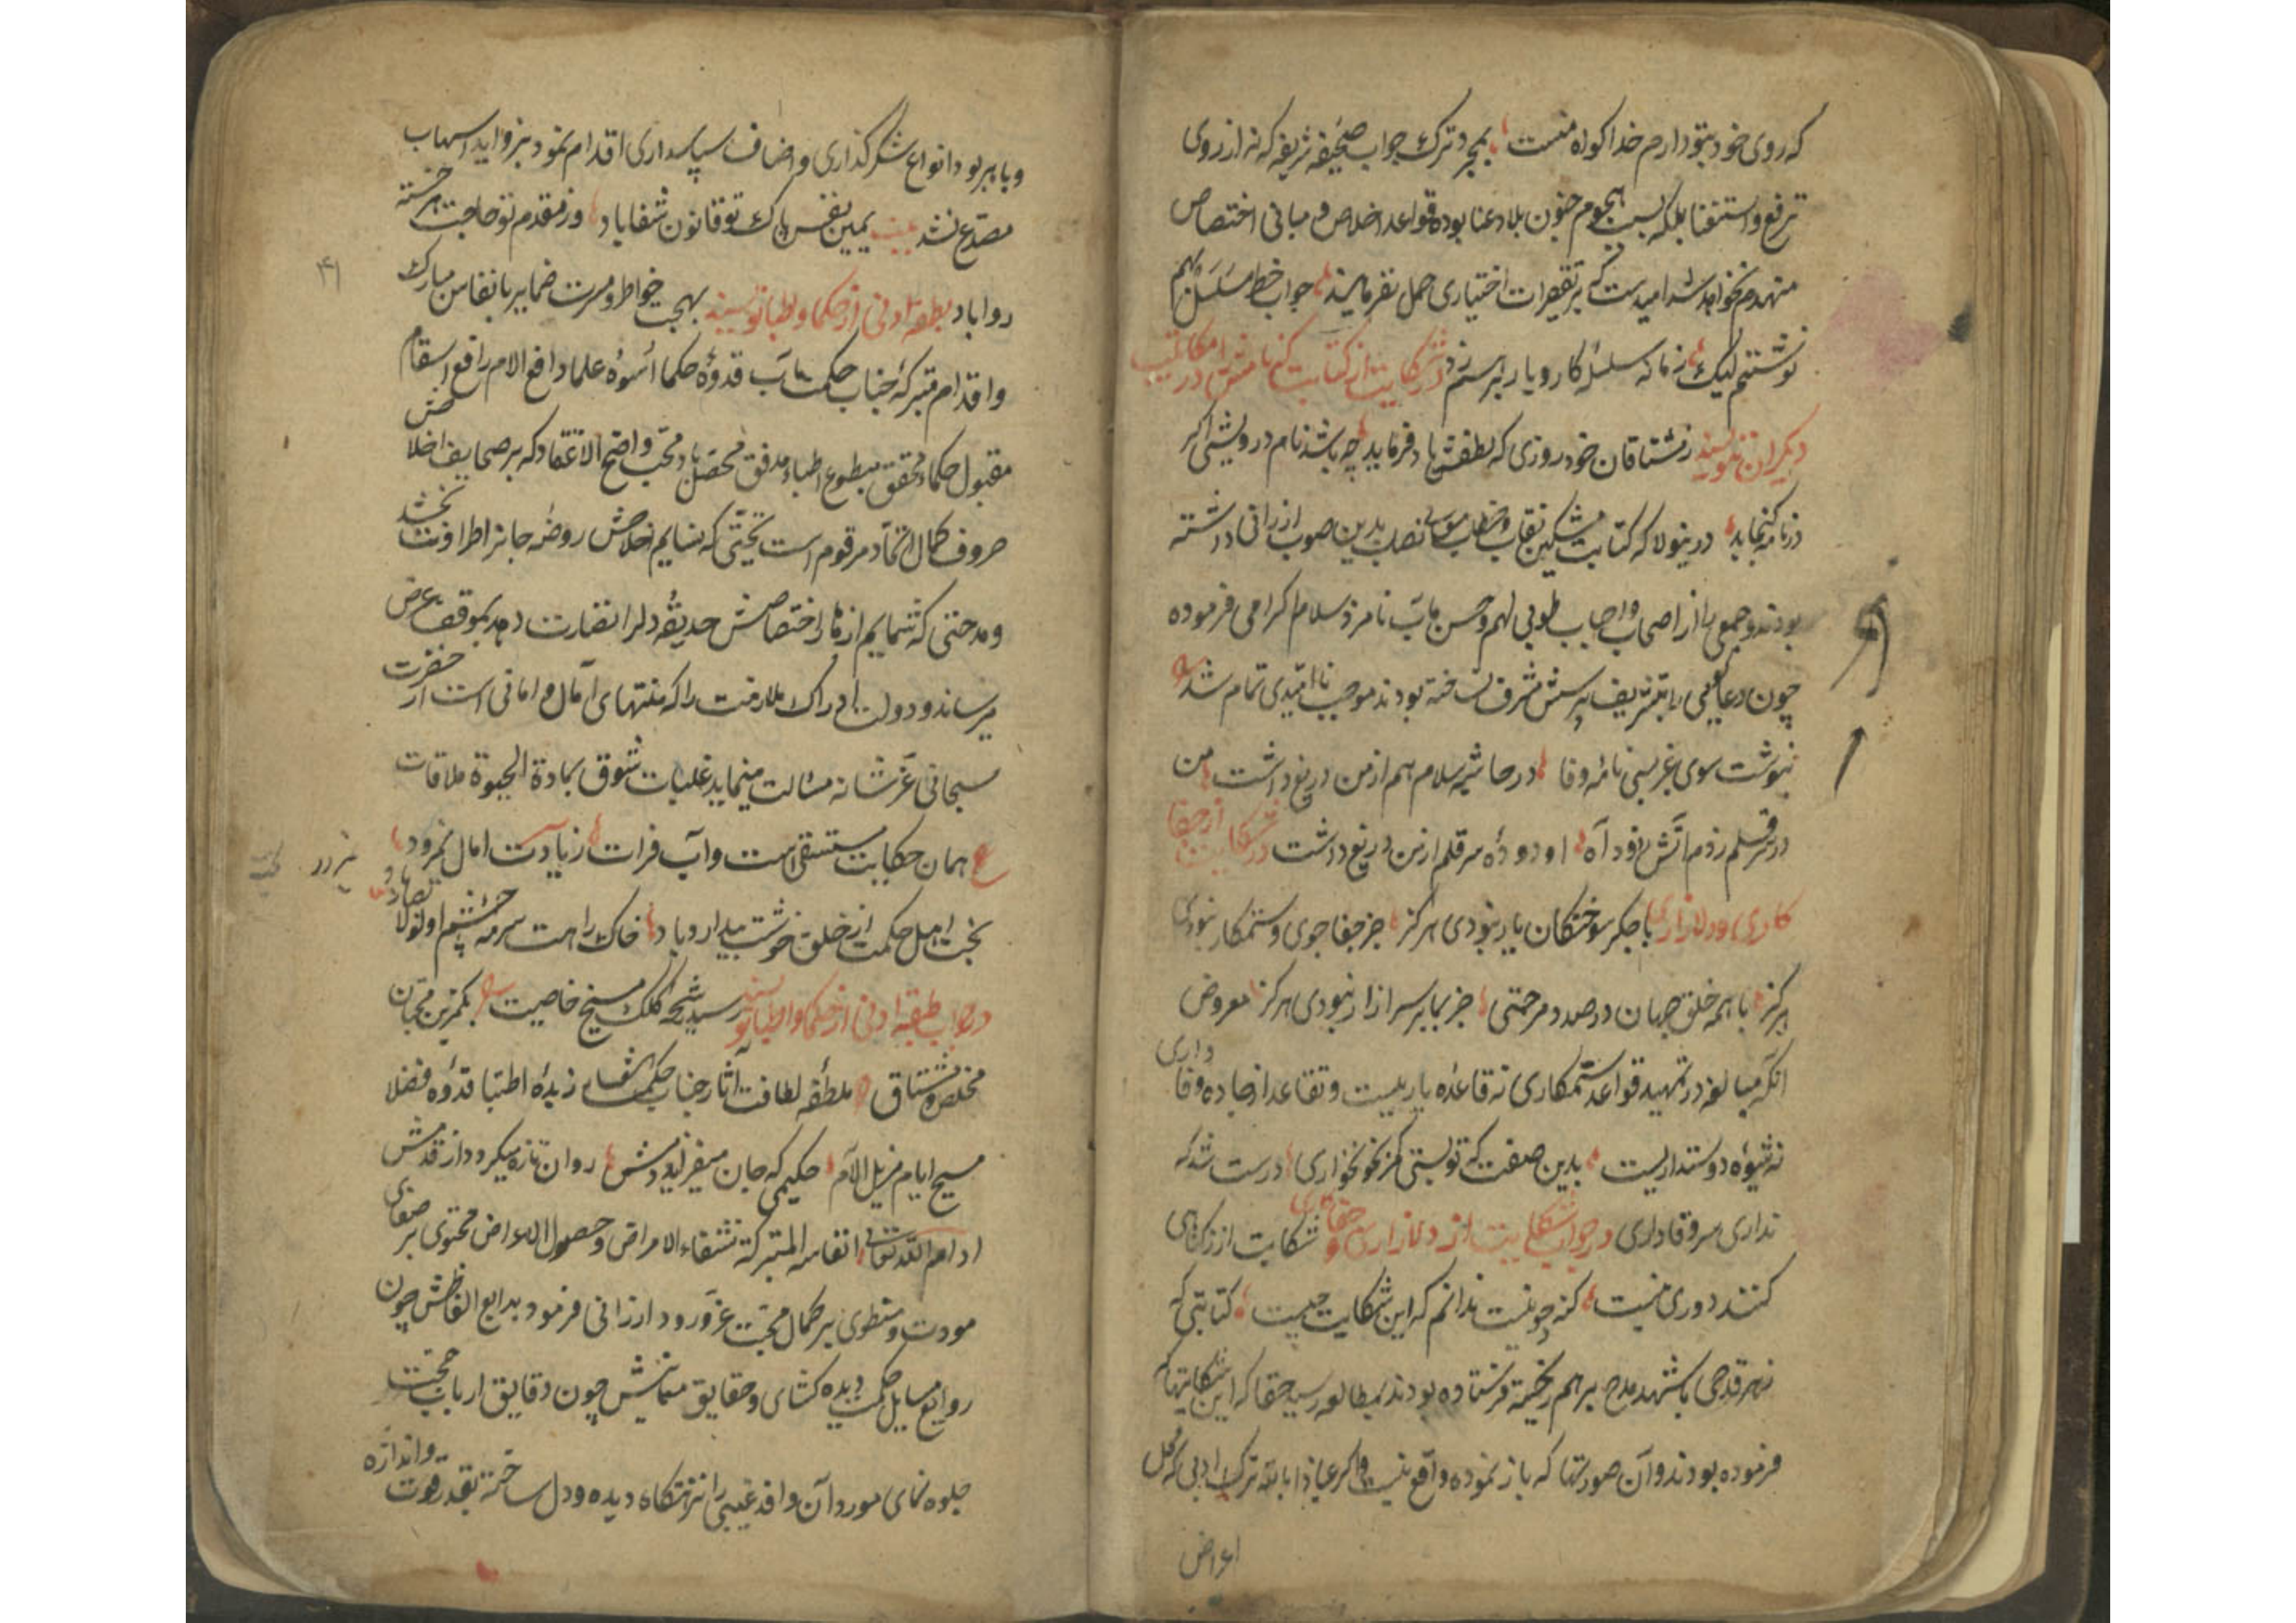 که روی خود بتو دارم خدا گواه منست بمجرد ترک جواب صحیفه شریفه که نه از روی
ترفع و استغنا بلکه بسبب هجوم جنون بلا و عنا بوده قواعد اخلاص و مبانی اختصاص
منهدم نخواهد شد امیدست که بر تقصیرات اختیاری حمل نفرمایند جواب خط مسلسل بهم
نوشتم لیک زمانه سلسله کار و بار برهم زد در شکایت از کتابت که نامش در مکاتیب
دیگران نویسند ز مشتاقان خود روزی که لطفش یاد فرماید چه باشد نام درویشی اگر
در نامه گنجاید درینولا که کتابت مشکین نقاب و خطاب بدین صوب ارزانی داشته
بودند و جمعی را از اصحاب و احباب طوبی لهم و حسن مآب نامزد سلام گرامی فرموده
چون دعاگویی را بتشریف پرسش مشرف نساخته بودند موجب ناامیدی تمام شد
ننوشت سوی غریبی نامه وفا در حاشیه سلام هم از من دریغ داشت من
در قلم زدم آتش ز دود آه او دوده سر قلم از من دریغ داشت در شکایت از جفا
کاری و دلازاری با جگر سوختگان یار نبودی هرگز جز جفاجوی و ستمکار نبودی
هرگز با همه خلق جهان در صدد مرحمتی جز بما بر سر آزار نبودی هرگز معروض
آنکه مبالغه در تمهید قواعد ستمکاری نه قاعده یاریست و تقاعد از جاده وفاداری
نه شیوه دوستداریست بدین صفت که تو بستی کمر بخونخواری درست شد که
نداری سر وفاداری در جواب شکایت از دلازاری و جفاکاری شکایت از گناهی
کنند دوری نیست گنه چو نیست ندانم که این شکایت چیست کتابتی که
زهر قدحی با شهد مدح برهم ریخته فرستاده بودند بمطالعه رسید حقا که این شکایتها که
فرموده بودند و آن صورتها که باز نموده واقع نیست و اگر عیاذا بالله ترک ادبی که محل
اعراض
و پا پیر بود انواع شکرگذاری و اصناف سپاسداری اقدام نمود بزواید اسهاب
مصدع نشد بیت بیمین نفس پاک تو قانون شفا باد وز مقدم تو حاجت هر خسته
روا باد بطبقه ادنی از حکما و اطبا نویسند بهجت خواطر و مسرت ضمایر بانفاس مبارک
و اقدام متبرکه جناب حکمت مآب قدوه حکما اسوه علما دافع الآلام رافع اسقام
مقبول حکماء محقق مطبوع اطباء مدقق محصل باد محب واضح الاعتقاد که بر صحایف اخلاص
حروف کمال اتحاد مرقوم است تحیتی که نسایم اخلاصش روضه جانرا طراوت بخشد
و مدحتی که شمایم ازهار اختصاصش حدیقه دلرا نضارت دهد بموقف عرض
میرساند و دولت ادراک ملازمت را که منتهای آمال و امانی است از حضرت
سبحانی عز شانه مسالت مینماید غلبات شوق بماده الحیوة ملاقات
ع همان حکایت مستسقی است و آب فرات زیادت امال نمرود
بخت اهل حکمت از خلق خوشت بیدار و باد خاک راهت سرمه چشم اولوالابصار باد
در جواب طبقه ادنی از حکما و اطبا نویسند رسید رشحه کلک مسیح خاصیت بکمترین محبان
مخلص و مشتاق ملطفه لطافت آثار جناب حکمت شعار زبده اطبا قدوه فضلا
مسیح ایام مزیل الآلام حکیمی که جان میفزاید دمش روان تازه میگردد از قدمش
ادام الله تعالی انفاسه المتبرکة لشفاء الامراض و حصول الاعراض محتوی بر صفای
مودت و منطوی بر کمال محبت عز ورود ارزانی فرمود بدایع الفاظش چون
روایع مسایل حکمت دیده کشای و حقایق معانیش چون دقایق ارباب محبت
جلوه نمای مورد آن وافد غیبی را نزهتگاه دیده و دل ساخته بقدر قوت و اندازه